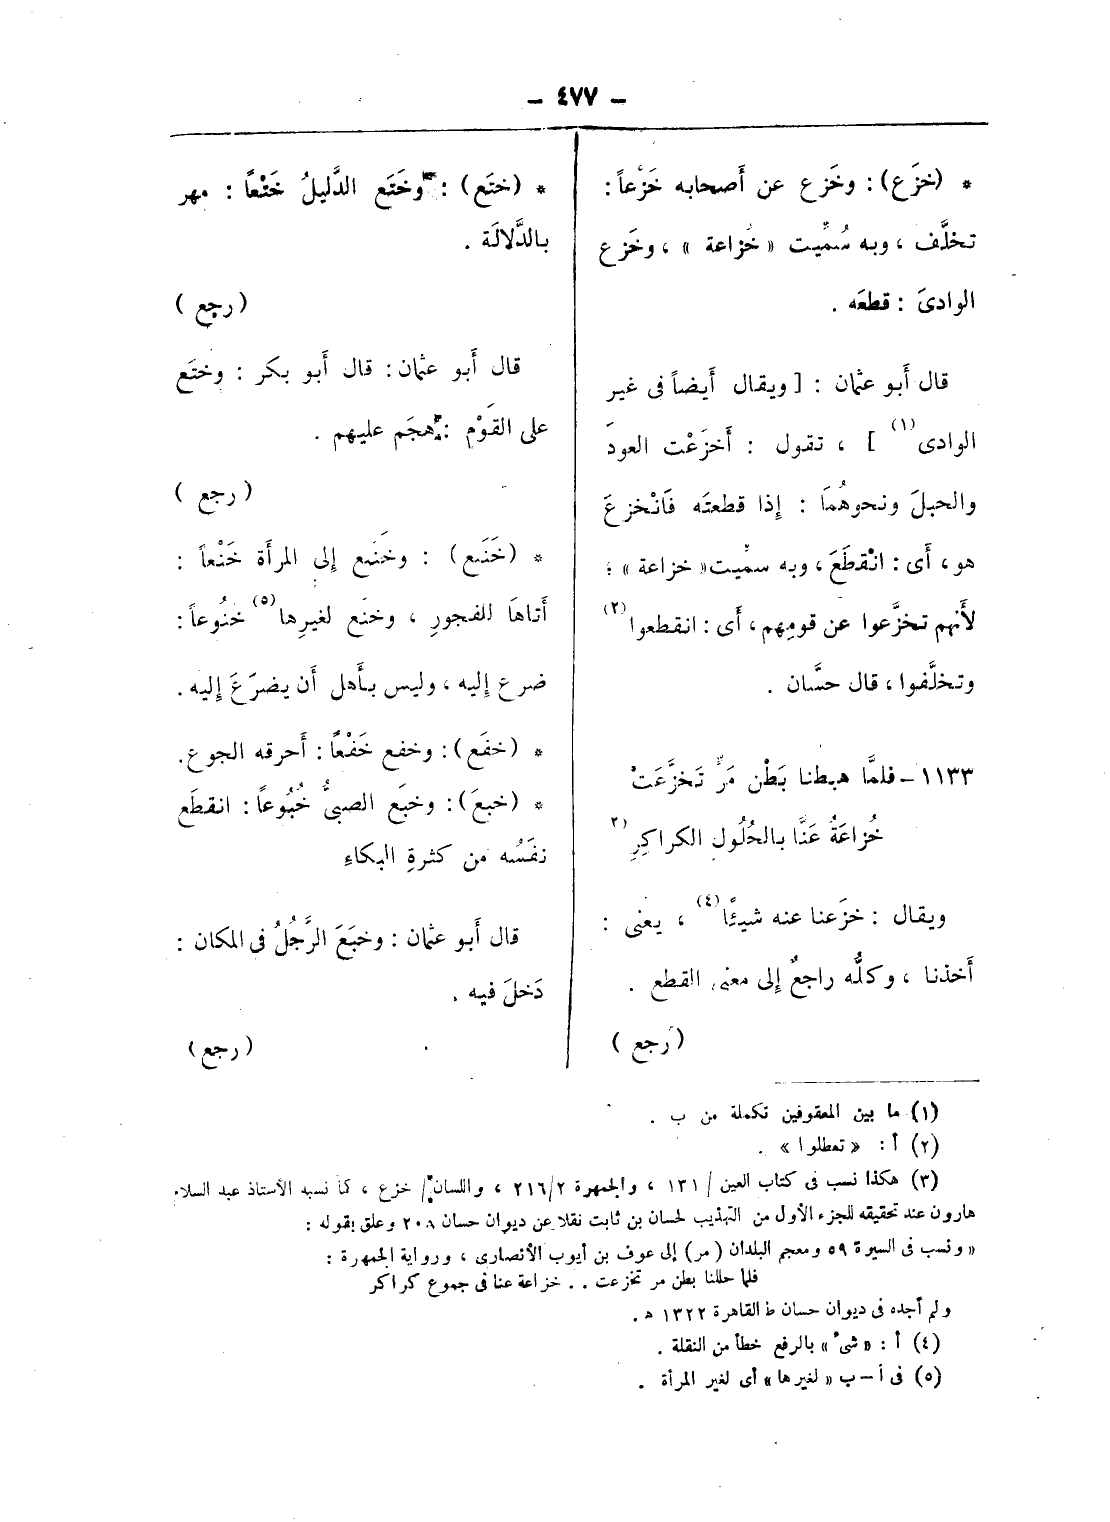 – ٤٧٧ –
* (خزَع): وخَزع عن أَصحابه خَزْعاً:
تخلَّف ، وبه سُمِّيت « خُزاعة » ، وخَزع
الوادىَ : قطعَه .
قال أَبو عثمان : [ ويقال أَيضاً فى غير
الوادى (١) ] ، تقول : أَخزَعْت العودَ
والحبلَ ونحوهُمَا : إِذا قطعتَه فَانْخزعَ
هو ، أَى : انْقطَعَ ، وبه سمِّيت « خزاعة » ؛
لأَنهم تخزَّعوا عن قومِهم ، أَى : انقطعوا (٢)
وتخلَّفوا ، قال حسَّان .
١١٣٣ – فلمَّا هبطنا بَطْن مَرٍّ تَخزَّعَتْ
خُزاعَةُ عَنَّا بالحُلُول الكراكِرِ (٣
ويقال : خزَعنا عنه شيئًا (٤) ، يعنى :
أَخذنا ، وكلُّه راجعٌ إِلى معنى القطع .
(رجع )
* (ختَع) : وخَتَع الدَّليلُ خَتْعاً : مهر
بالدَّلالَة .
(رجع )
قال أَبو عثمان : قال أَبو بكر : وختَع
على القَوْمِ : هجَم عليهم .
(رجع )
* (خَنَع) : وخنَع إِلى المرأَة خَنْعاً :
أَتاهَا للفجورِ ، وخنَع لغيرِها (٥) خنُوعاً :
ضرع إِليه ، وليس بأَهل أَن يضرَعَ إِليه .
* (خفَع) : وخفع خَفْعاً : أَحرقه الجوع .
* (خبعَ) : وخبَع الصبىُّ خُبُوعاً : انقطَع
نفَسُه من كثرةِ البكاءِ
قال أَبو عثمان : وخبَعَ الرَّجُلُ فى المكان :
دَخلَ فيه .
(رجع)
(١) ما بين المعقوفين تكملة من ب .
(٢) أ : « تعطلوا » .
(٣) هكذا نسب فى كتاب العين / ١٣١ ، والجمهرة ٢١٦/٢ ، واللسان / خزع ، كما نسبه الأستاذ عبد السلام
هارون عند تحقيقه للجزء الأول من التهذيب لحسان بن ثابت نقلا عن ديوان حسان ٢٠٨ وعلق بقوله :
« ونسب فى السيرة ٥٩ ومعجم البلدان ( مر ) إلى عوف بن أيوب الأنصارى ، ورواية الجمهرة :
فلما حللنا بطن مر تخزعت . . خزاعة عنا فى جموع كراكر
ولم أجده فى ديوان حسان ط القاهرة ١٣٢٢ ه .
(٤) أ : « شىء » بالرفع خطأ من النقلة .
(٥) فى أ – ب « لغيرها » أى لغير المرأة .